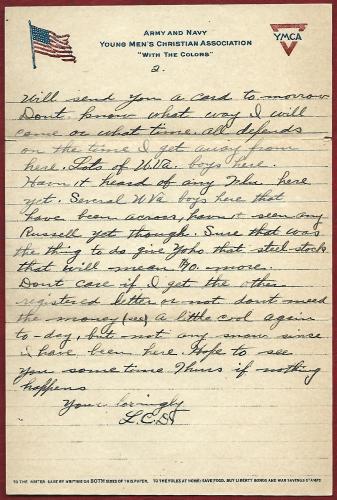 ARMY AND NAVY
YOUNG MEN'S CHRISTIAN ASSOCIATION
"WITH THE COLORS"
YMCA
2.
Will send you a card to-morrow
Dont know what way I will
come or what time. all depends
on the time I get away from
here. Lots of W.Va. boys here.
Haven't heard of any Flu here
yet. Several W Va boys here that
have been across, haven't seen any
Russell yet though. Sure that was
the thing to do give Yoho that steel-stock
that will mean $40. more.
Dont care if I get the other
registered letter or not dont need
the money A little cool again
to-day, but not any snow since
i have been here. Hope to see
you some time Thurs if nothing
happens
Your lovingly
TO THE WRITER: SAVE BY WRITING ON BOTH SIDES OF THIS PAPER. TO THE FOLKS AT HOME: SAVE FOOD, BUY LIBERTY BONDS AND WAR SAVINGS STAMPS